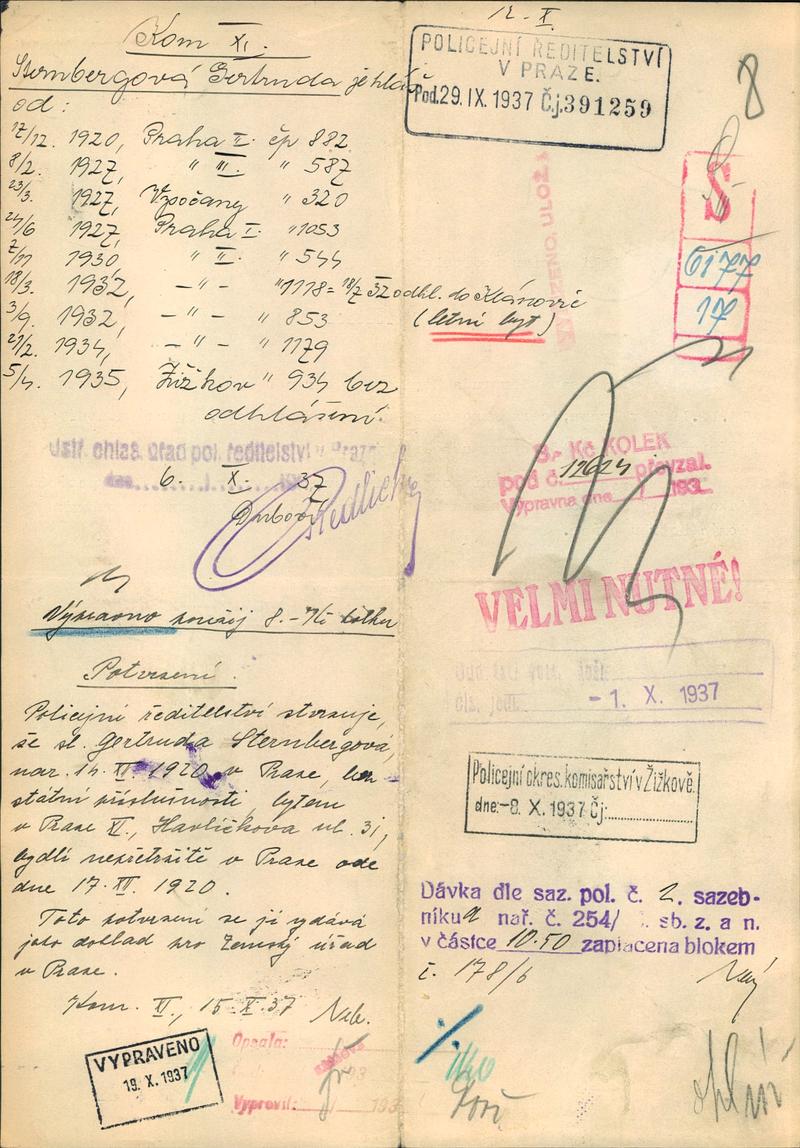 Kom XI.
Sternbergová Gertruda je hláš
od:
17/12. 1920, Praha II. čp 882
8/2. 1927, " III. " 587
23/3. 1927, Vysočany " 320
24/6 1927, Praha I. " 1053
7/11 1930 " II. " 544
18/3. 1932, –"– " 1118 = 18/7 32 odhl. do Klánovic
(letní byt)
3/9. 1932, –"– " 853
27/2. 1934, –"– " 1179
5/4. 1935, Žižkov " 934 bez
odhlášení.
Ústř. ohlaš. úřad pol. ředitelství v Praze
dne
6. X. 37
Výpravno použij 8.- Kč kolku
Potvrzení.
Policejní ředitelství stvrzuje,
že sl. Gertruda Sternbergová,
nar. 14. II. 1920 v Praze, bez
státní příslušnosti, bytem
v Praze XI., Havlíčkova ul. 31,
bydlí nepřetržitě v Praze ode
dne 17. XII. 1920.
Toto potvrzení se jí vydává
jako doklad pro Zemský úřad
v Praze.
Kom. XI., 15. X. 37
VYPRAVENO
19. X. 1937
Opsala:
Vypravil:
12. X.
POLICEJNÍ ŘEDITELSTVÍ
V PRAZE.
Pod. 29. IX. 1937 Čj. 391259
8
S
6177
17
8.- Kč KOLEK
pod č. 12624 převzal.
Výpravna dne 193
VELMI NUTNÉ!
- 1. X. 1937
Policejní okres. komisařství v Žižkově.
dne: -8. X. 1937 Čj:
Dávka dle saz. pol. č. 2. sazeb-
níku a nař. č. 254/ sb. z. a n.
v částce 10.50 zaplacena blokem
č. 178/6